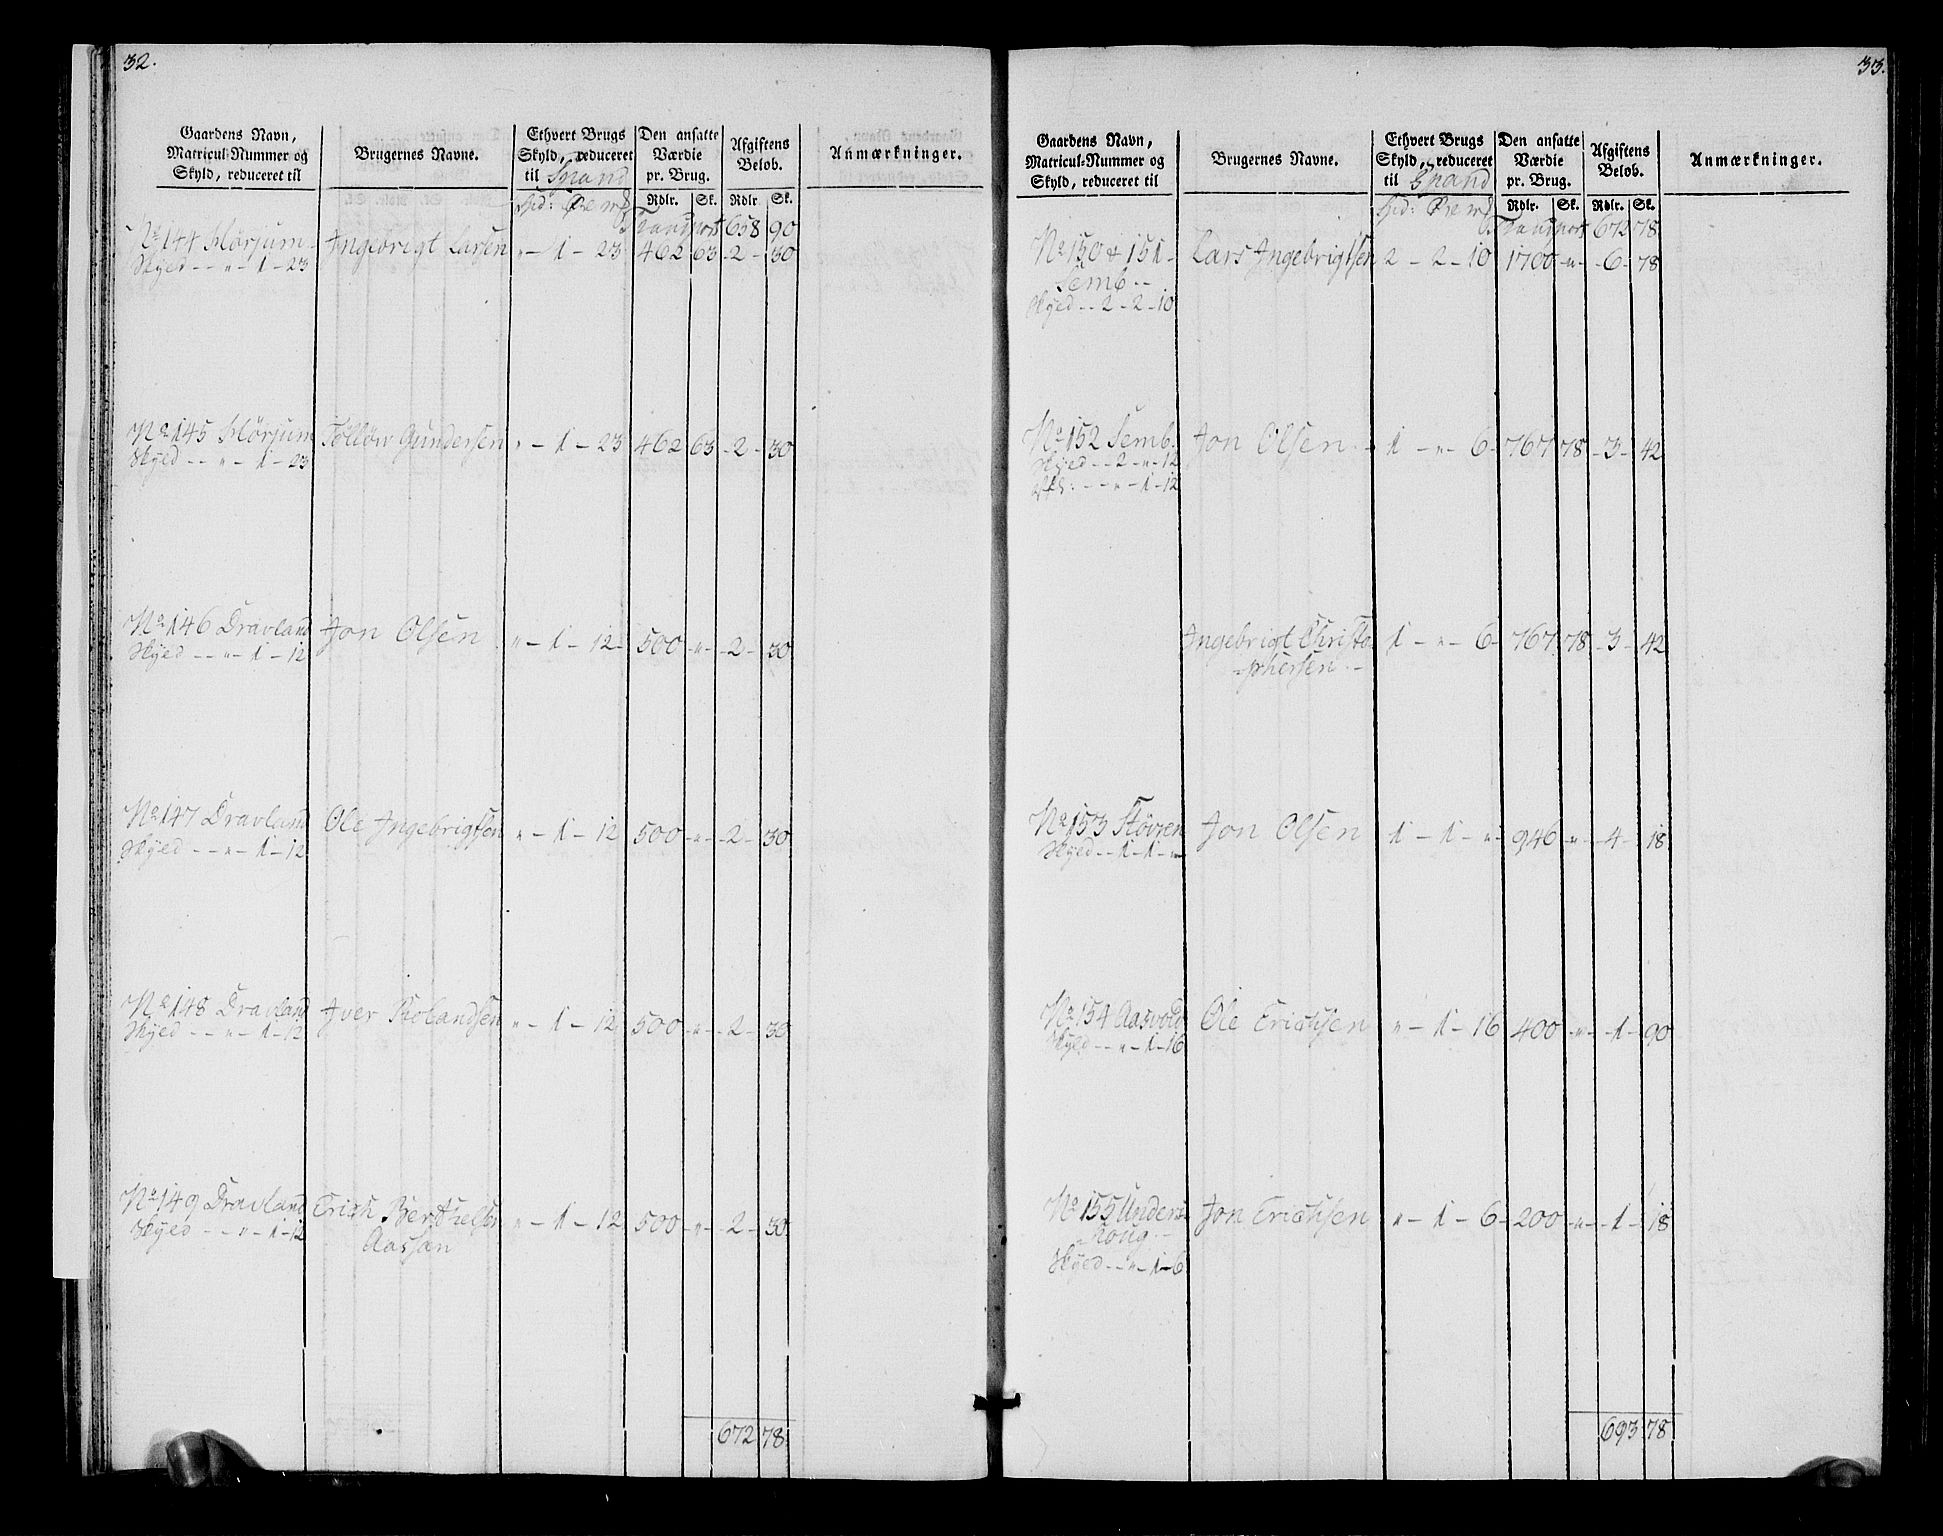 32.
Gaardens Navn, Matricul-Nummer og Skyld, reduceret til
Brugernes Navne.
Ethvert Brugs Skyld, reduceret til Spand
Den ansatte Værdie pr. Brug.
Afgiftens Beløb.
Anmærkninger.
Rdlr. Sk. Rdlr. Sk.
Transport 658 90
No 144 Hörjum Ingebrigt Larsen " - 1 - 23 462 63 - 2 - 30
Skyld - - " - 1 - 23
No 145 Hörjum Tölløv Gundersen " - 1 - 23 462 63 - 2 - 30
Skyld - - " - 1 - 23
No 146 Dravland Jon Olsen " - 1 - 12 500 - " - 2 - 30
Skyld - - " - 1 - 12
No 147 Dravland Ole Ingebrigtsen " - 1 - 12 500 - " - 2 - 30
Skyld - - " - 1 - 12
No 148 Dravland Iver Rolandsen " - 1 - 12 500 - " - 2 - 30
Skyld - - " - 1 - 12
No 149 Dravland Erich Berthelsen " - 1 - 12 500 - " - 2 - 30
Skyld - - " - 1 - 12 Aassan
672 78
33.
Gaardens Navn, Matricul-Nummer og Skyld, reduceret til
Brugernes Navne.
Ethvert Brugs Skyld, reduceret til Spand
Den ansatte Værdie pr. Brug.
Afgiftens Beløb.
Anmærkninger.
Rdlr. Sk. Rdlr. Sk.
Transport 672 78
No 150 & 151 Lars Ingebrigtsen 2 - 2 - 10 1700 - " - 6 - 78
Semb - -
Skyld - - 2 - 2 - 10
No 152 Semb. Jon Olsen 1 - " - 6 - 767 78 - 3 - 42
Skyld - - 2 - " - 12
- - " - 1 - 12
Ingebrigt Christo- 1 - " - 6 - 767 78 - 3 - 42
phersen
No 153 Støvren Jon Olsen 1 - 1 - " - 946 - " - 4 - 18
Skyld - - 1 - 1 - "
No 154 Aasvold Ole Erichsen " - 1 - 16 400 - " - 1 - 90
Skyld - - " - 1 - 16
No 155 Unders- Jon Erichsen " - 1 - 6 - 200 - " - 1 - 18
houg
Skyld - - " - 1 - 6
693 78